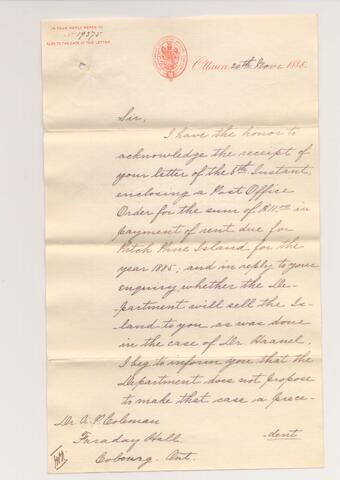 IN YOUR REPLY REFER TO
No 19375
ALSO TO THE DATE OF THIS LETTER
Ottawa, 20th Novr 1885.
Sir,
I have the honor to
acknowledge the receipt of
your letter of the 6th Instant,
enclosing a Post Office
Order for the sum of $4.00 in
payment of rent due for
Pitch Pine Island for the
year 1885; and in reply to your
enquiry whether the De-
partment will sell the Is-
land to you, as was done
in the case of Mr Haanel,
I beg to inform you that the
Department does not propose
to make that case a prece-
dent
Dr A. P. Coleman
Faraday Hall
Cobourg. Ont.